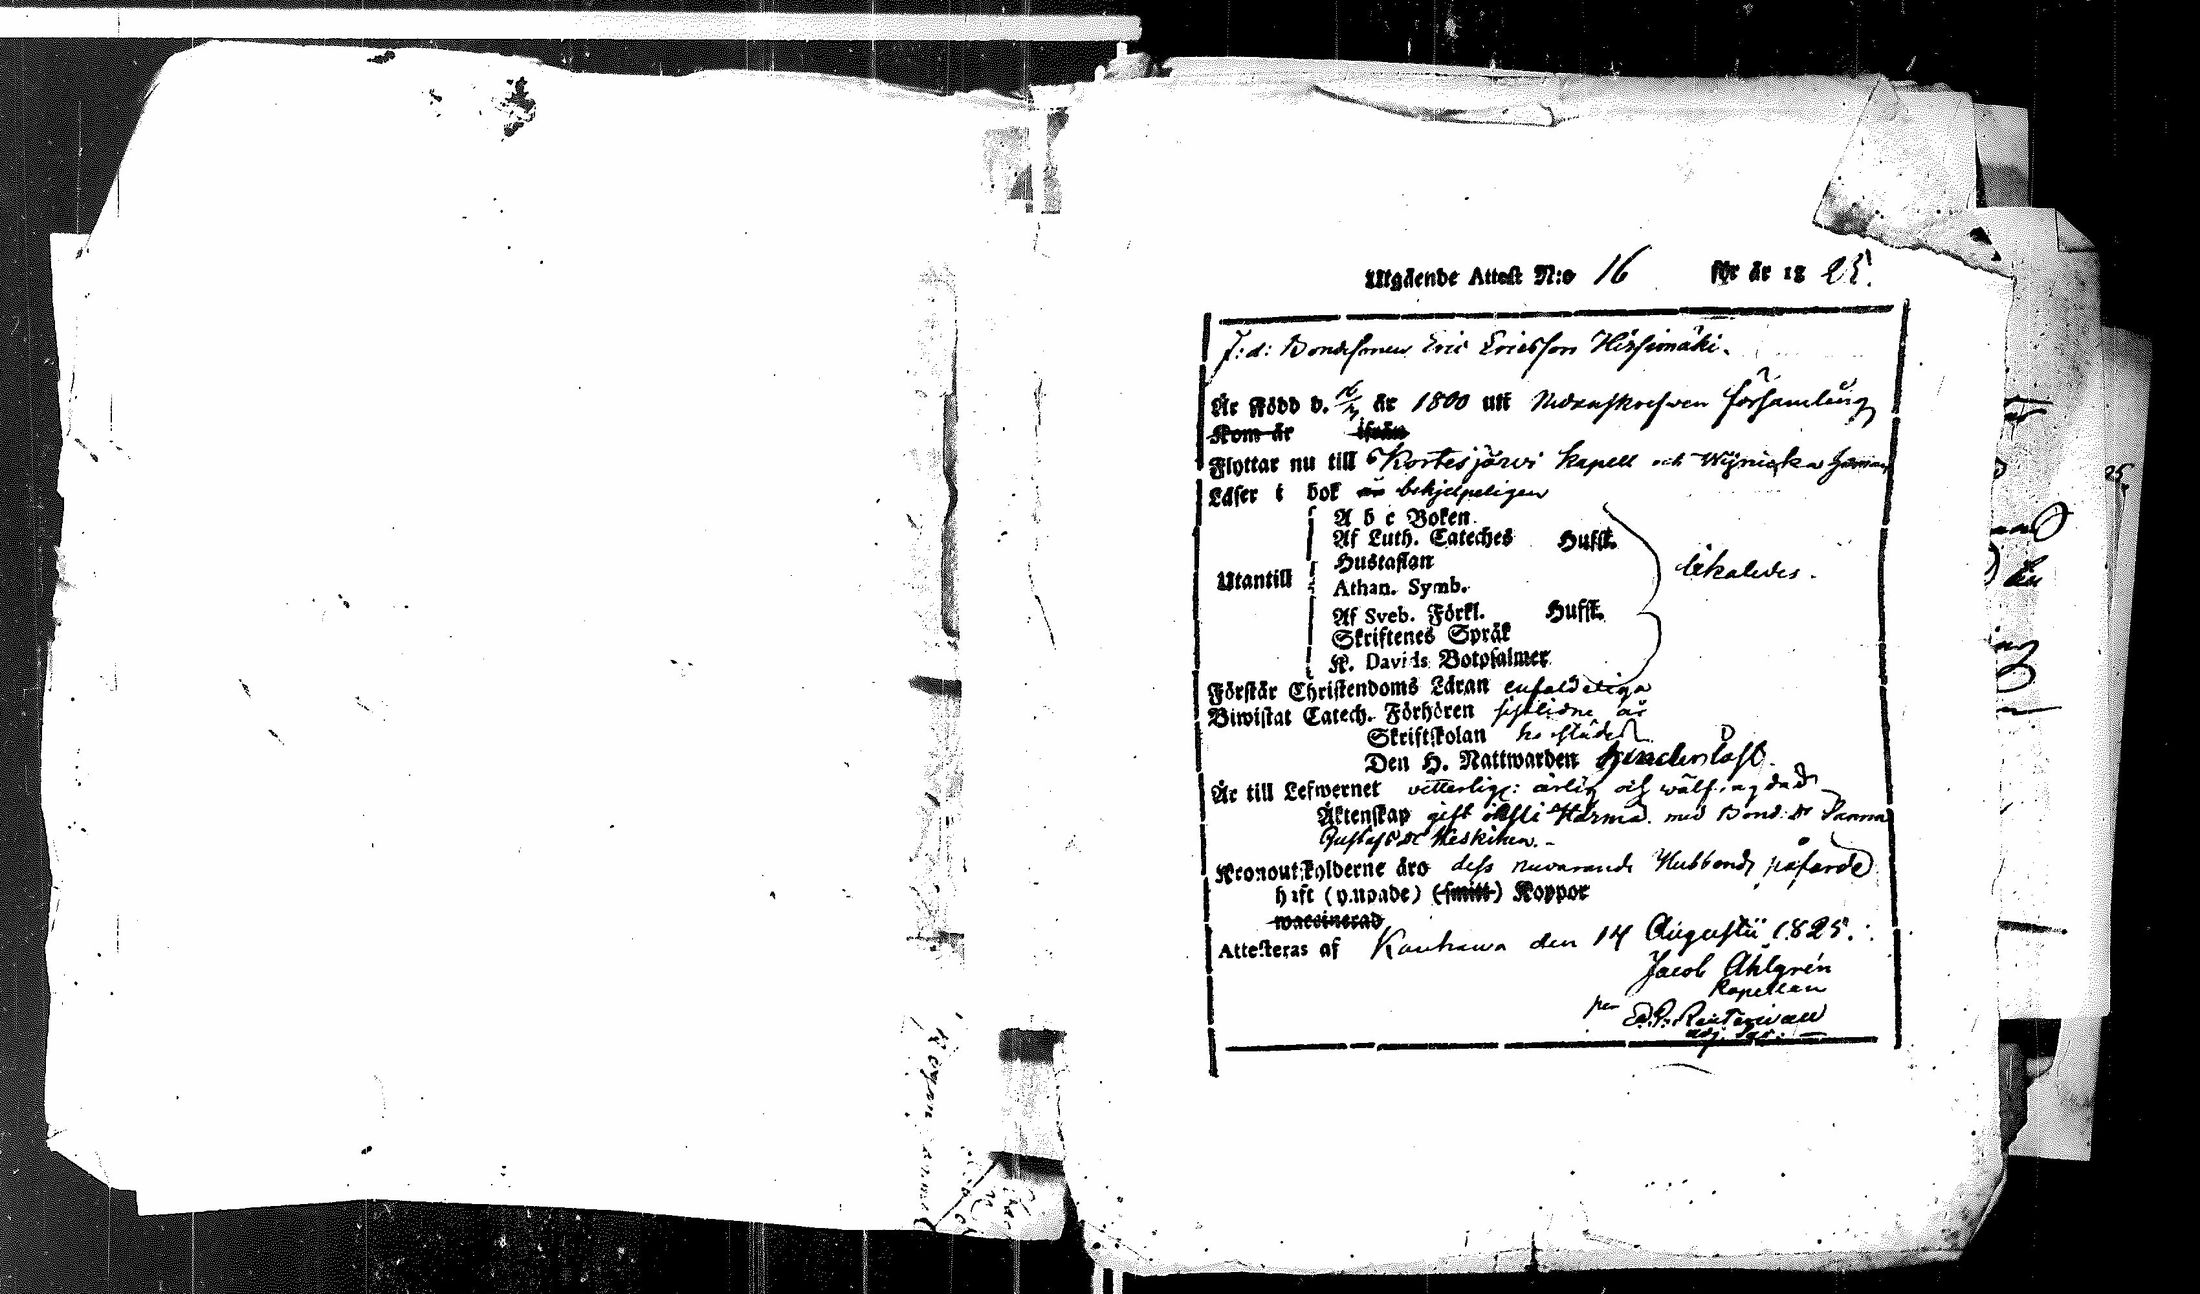 Utgående Attest N:o 16 för år 1825.
F:d: Bondesonen Eric Ericsson Hirsimäki.
Är Född d. år 1800 uti Nedanskrefven församling
Kom år ifrån
Flyttar nu till Kortesjärvi kapell och
Läser i bok behjelpeligen
A b c Boken
Af Luth. Cateches Hufst.
Hustaflan
Utantill Athan. Symb. likaledes.
Af Sveb. Förkl. Hufst.
Skriftenes Språk
K. Davids Botpsalmer
Förstår Christendoms Läran enfaldeliga
Biwistat Catech. Förhören sistlidne år
Skriftskolan
Den H. Nattwarden hinderslöst.
Är till Lefwernet vetterlig: ärlig och wälfrägdad
Äktenskap gift i Härmä med Bond: Dr Sanna
Gustafs Dr Keskinen.-
Kronoutskylderne äro dess nuvarande Husbonde påförde
haft (ympade) (smitt) Koppor
waccinerad
Attesteras af Kauhawa den 14 Augustii 1825.
Jacob Ahlgrén
Kapellan
per